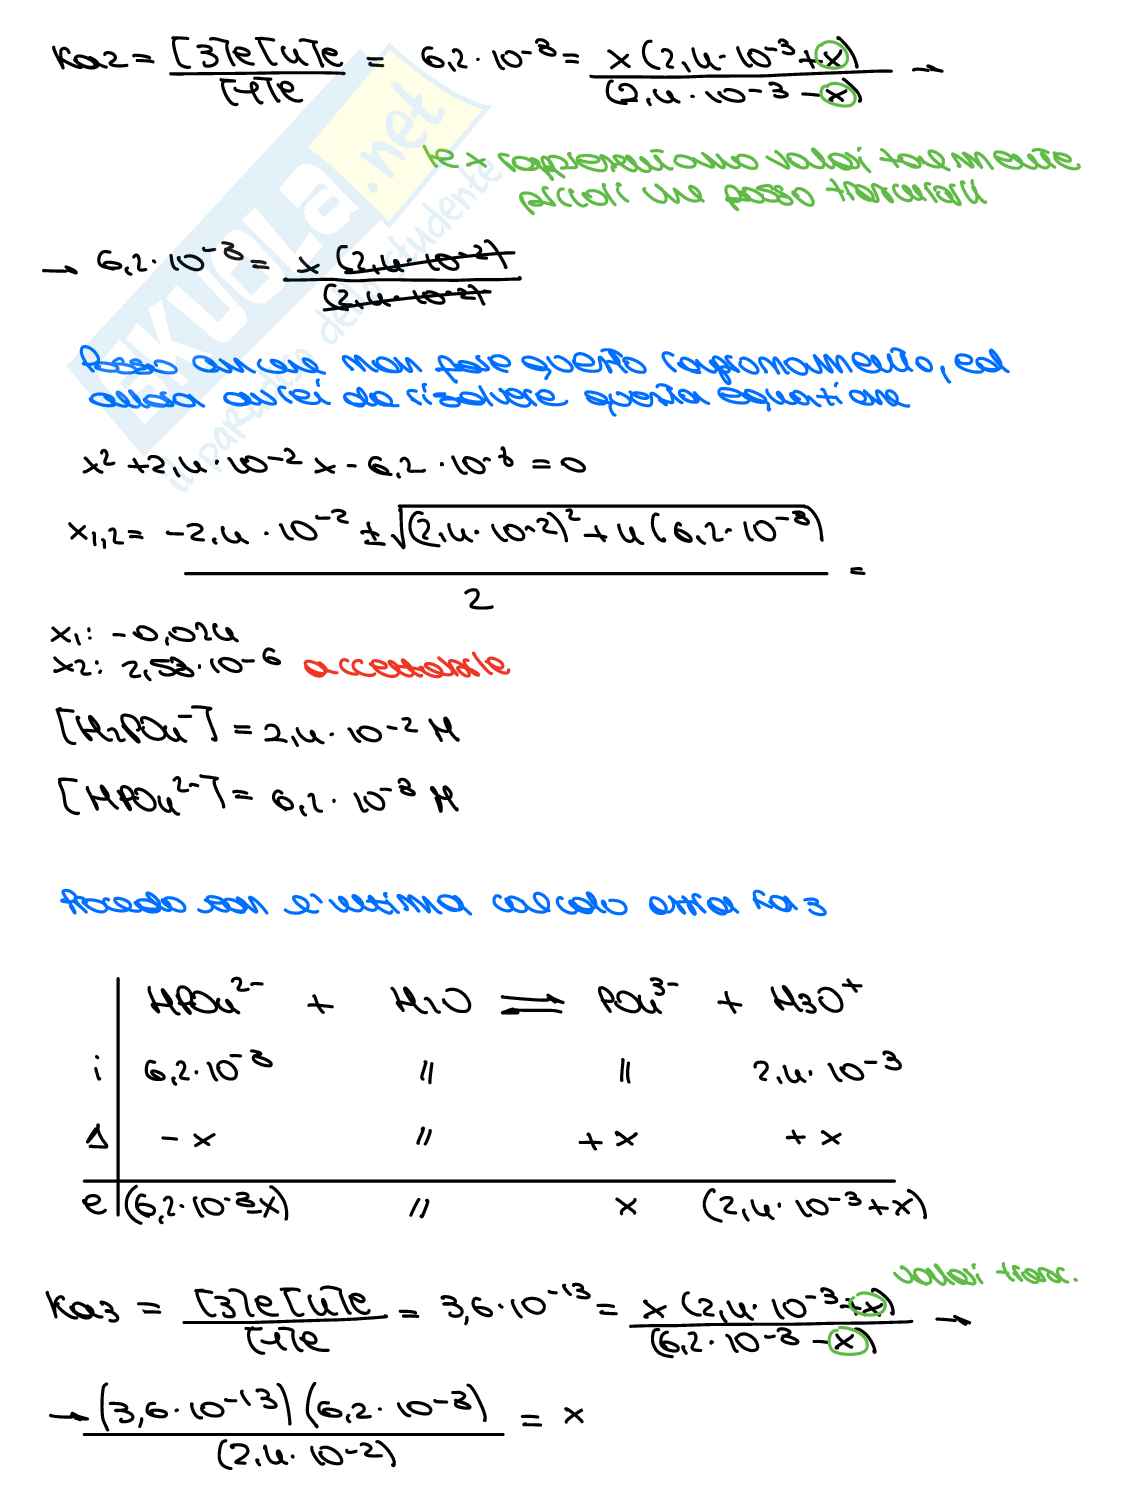 Ka2 = [3]e[4]e / [1]e = 6,2·10⁻⁸ = x(2,4·10⁻³+x) / (2,4·10⁻³-x) →
le x rappresentano valori talmente
piccoli che posso trascurarli
→ 6,2·10⁻⁸ = x(2,4·10⁻²) / (2,4·10⁻²)
Posso anche non fare questo ragionamento, ed
allora avrei da risolvere questa equazione
x² + 2,4·10⁻² x - 6,2·10⁻⁸ = 0
x1,2 = -2,4·10⁻² ± √(2,4·10⁻²)² + 4(6,2·10⁻⁸) / 2 =
x1: -0,024
x2: 2,53·10⁻⁶ accettabile
[H2PO4⁻] = 2,4·10⁻² M
[HPO4²⁻] = 6,2·10⁻⁸ M
Procedo con l'ultima calcolo ossia Ka3
HPO4²⁻ + H2O ⇌ PO4³⁻ + H3O⁺
i 6,2·10⁻⁸ // // 2,4·10⁻³
Δ -x // +x +x
e (6,2·10⁻⁸-x) // x (2,4·10⁻³+x)
valori trasc.
Ka3 = [3]e[4]e / [1]e = 3,6·10⁻¹³ = x(2,4·10⁻³+x) / (6,2·10⁻⁸-x) →
→ (3,6·10⁻¹³)(6,2·10⁻⁸) / (2,4·10⁻²) = x
SKUOLA.net